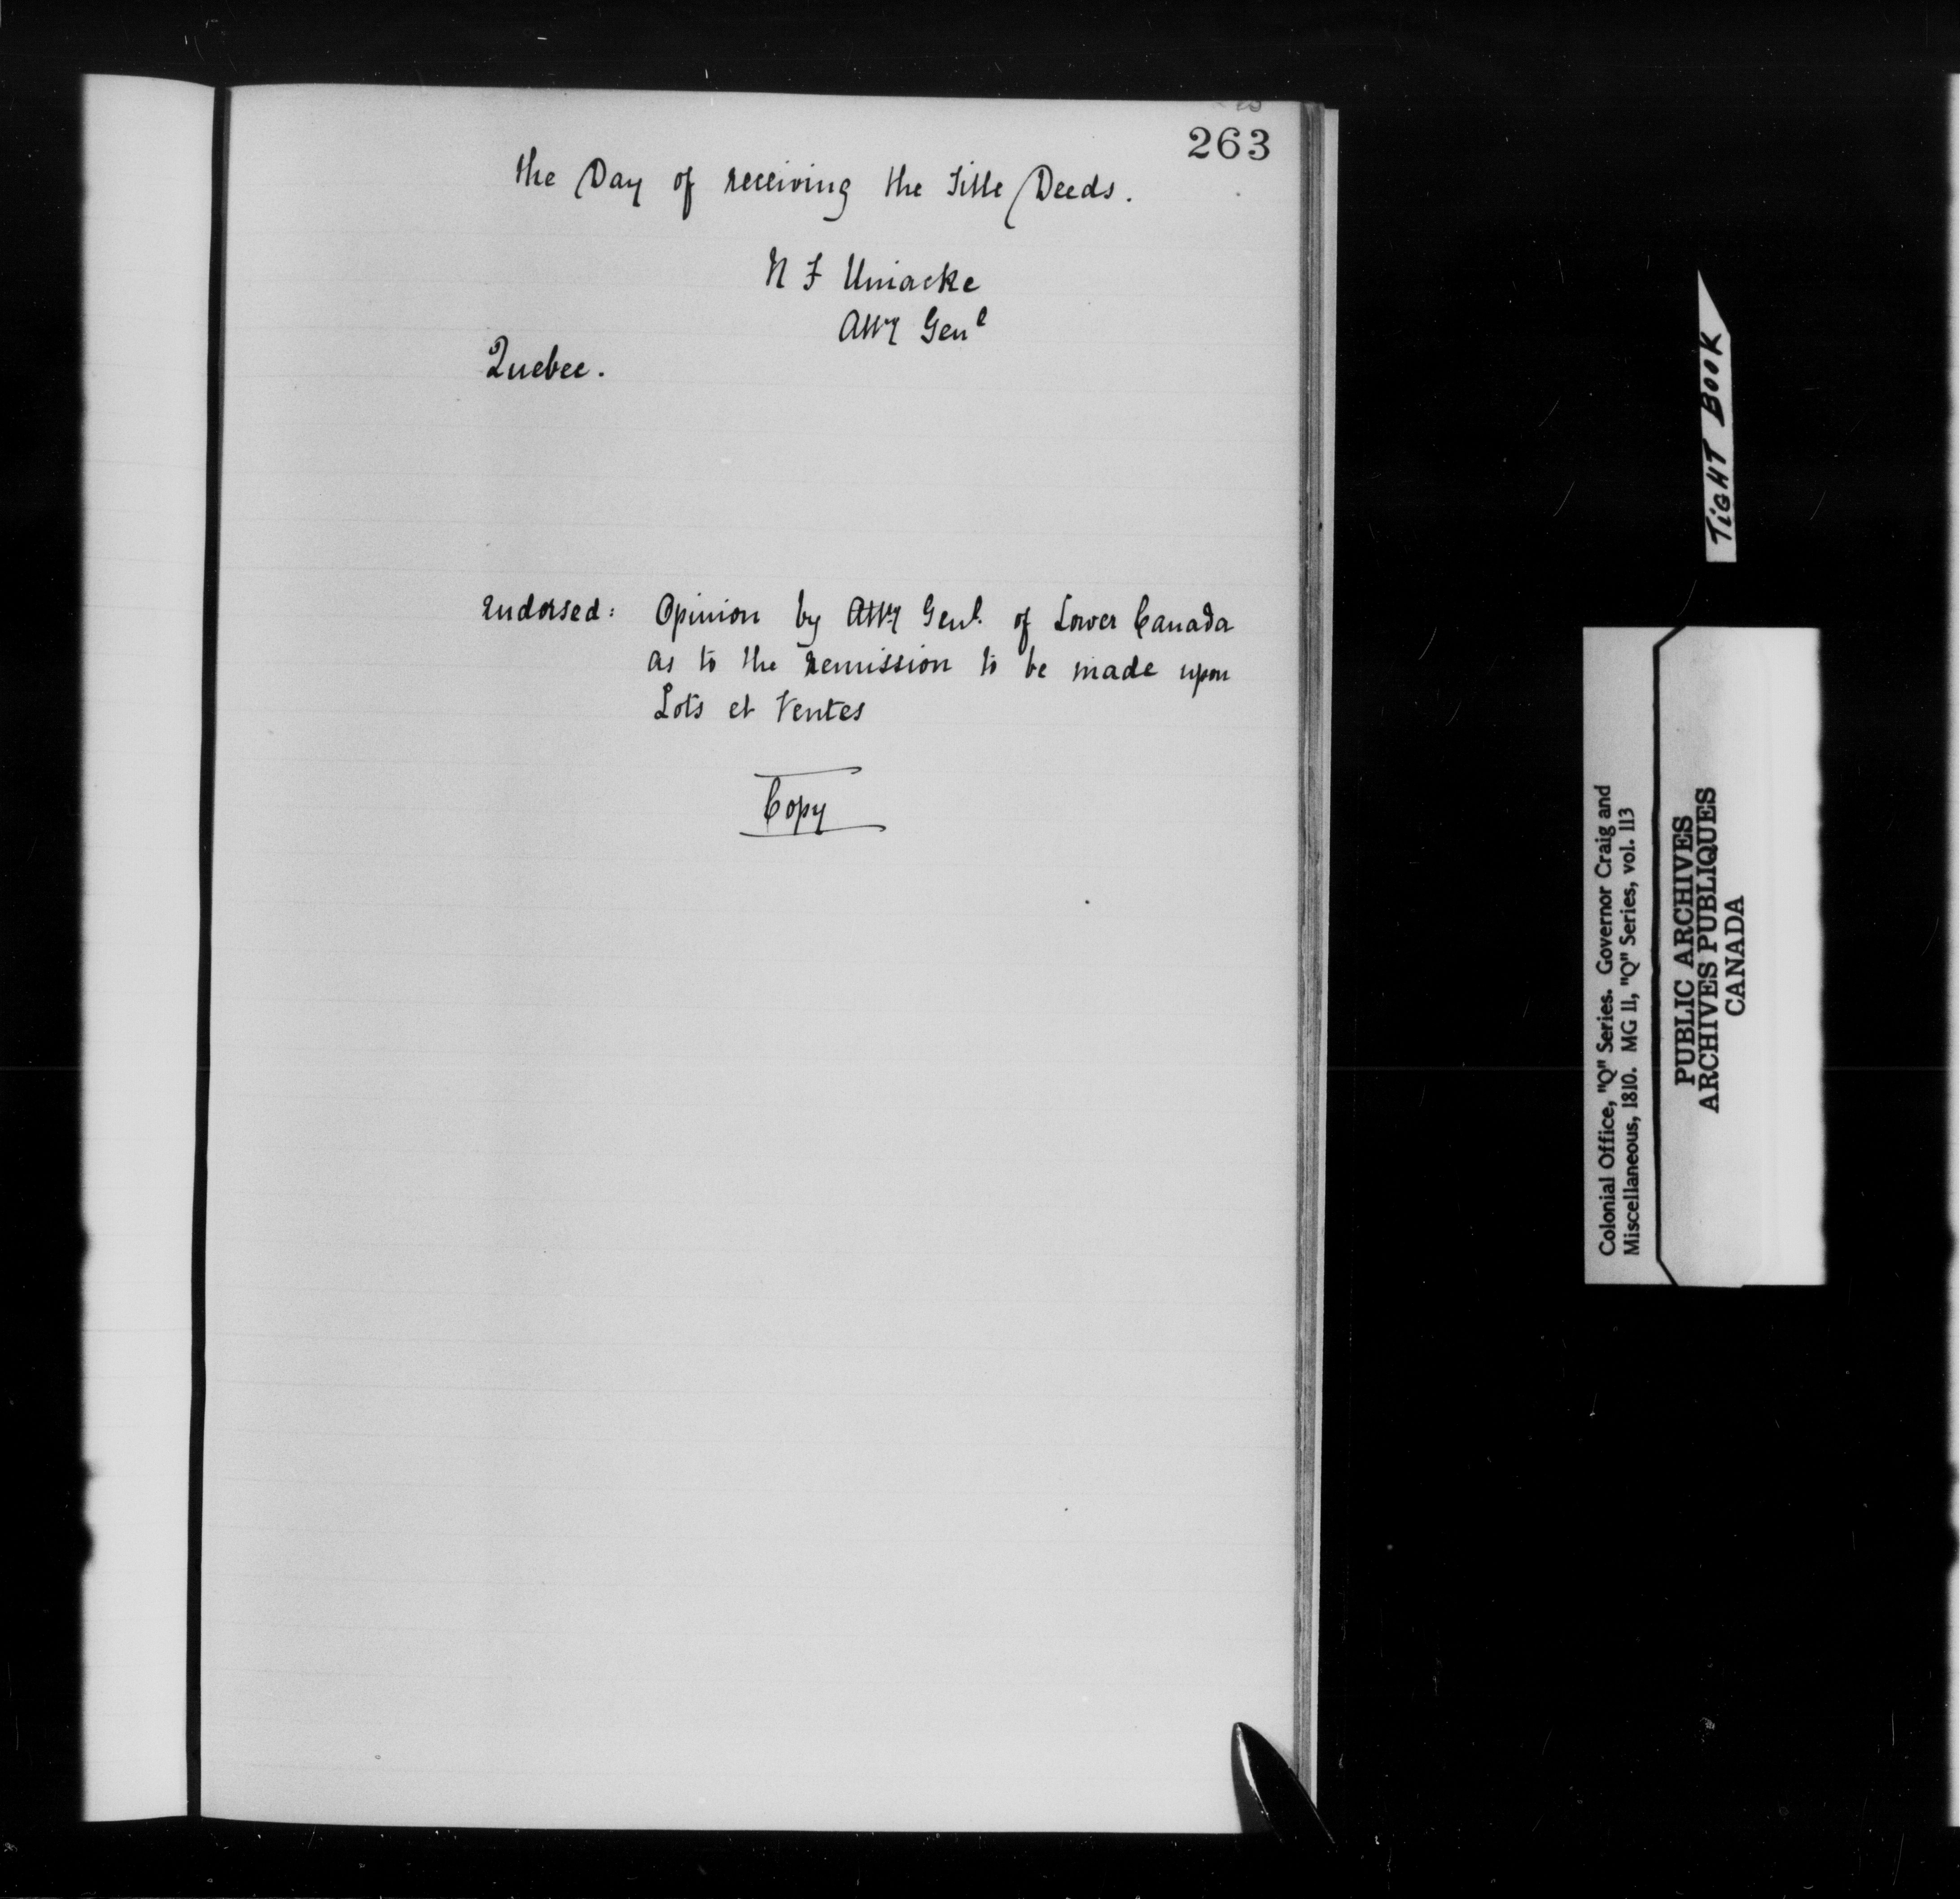 263
the Day of receiving the Title Deeds.
N F Uniacke
Atty Genl
Quebec.
Endorsed: Opinion by Atty Genl. of Lower Canada
as to the remission to be made upon
Lots et Ventes
Copy
TIGHT BOOK
Colonial Office, "Q" Series. Governor Craig and
Miscellaneous, 1810. MG 11, "Q" Series, vol. 113
PUBLIC ARCHIVES
ARCHIVES PUBLIQUES
CANADA